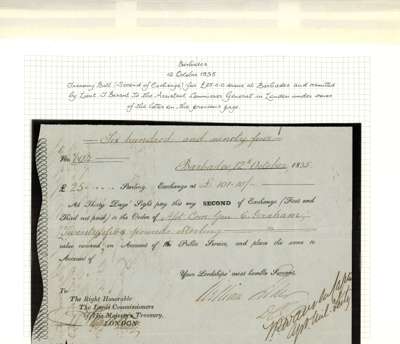 Barbados
12 October 1835
Treasury Bill (Second of Exchange) for £25.0.0 drawn at Barbados and remitted
by Lieut. J. to the Assistant Commissary General in London under cover
of the letter on the previous page
Six hundred and ninety four
No.
Barbados, 12th October, 1835
£ 25 Sterling. Exchange at £
At Thirty Days' Sight pay this my SECOND of Exchange (First and
Third not paid) to the Order of Asst Com Gen C. Graham,
Twenty five pounds Sterling
value received, on Account of the Public Service, and place the same to
Account of
Your Lordships' most humble Servant,
William
To
The Right Honorable
The Lords Commissioners
of His Majesty's Treasury,
LONDON